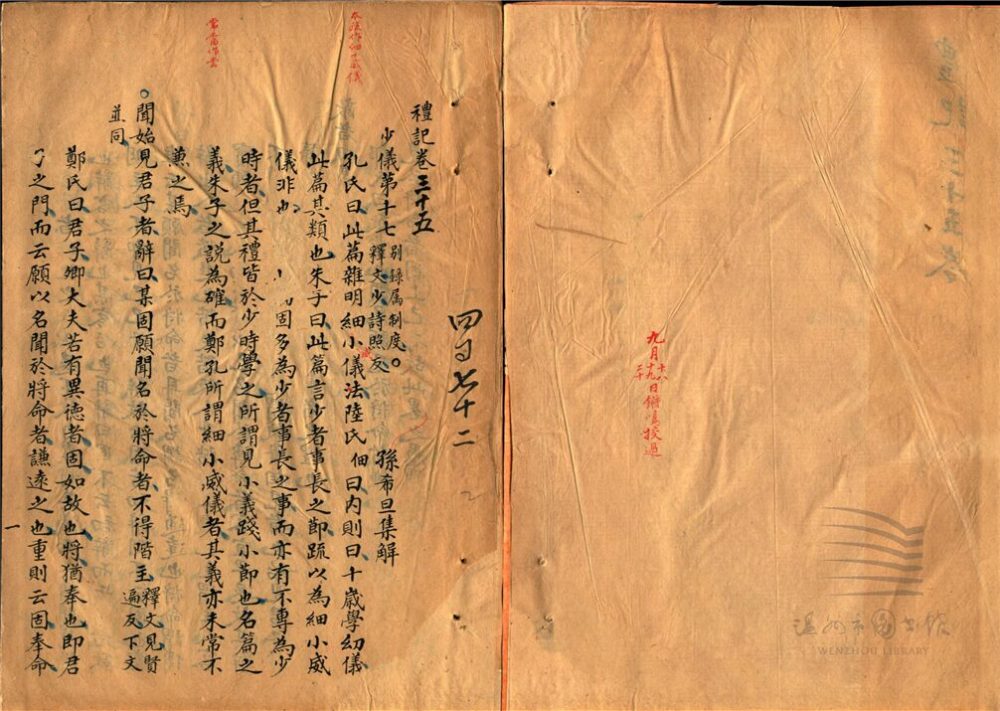 本疏作細小威儀
常當作嘗
禮記卷三十五
少儀第十七 別錄属制度。釋文少詩照反 孫希旦集解
孔氏曰此篇雜明細小威儀法陸氏佃曰内則曰十歲學幼儀
此篇其類也朱子曰此篇言少者事長之節疏以為細小威
儀非也 固多為少者事長之事而亦有不專為少
時者但其禮皆於少時學之所謂見小義踐小節也名篇之
義朱子之說為確而鄭孔所謂細小威儀者其義亦未常不
兼之焉
聞始見君子者辭曰某固願聞名於將命者不得階主 釋文見賢遍反下文
並同
鄭氏曰君子卿大夫若有異德者固如故也將猶奉也即君
子之門而云願以名聞於將命者謙遠之也重則云固奉命
一
四百七十二
九月十八十九二十日鏘鳴挍過
禮記三十五卷
温州市图书馆
WENZHOU LIBRARY